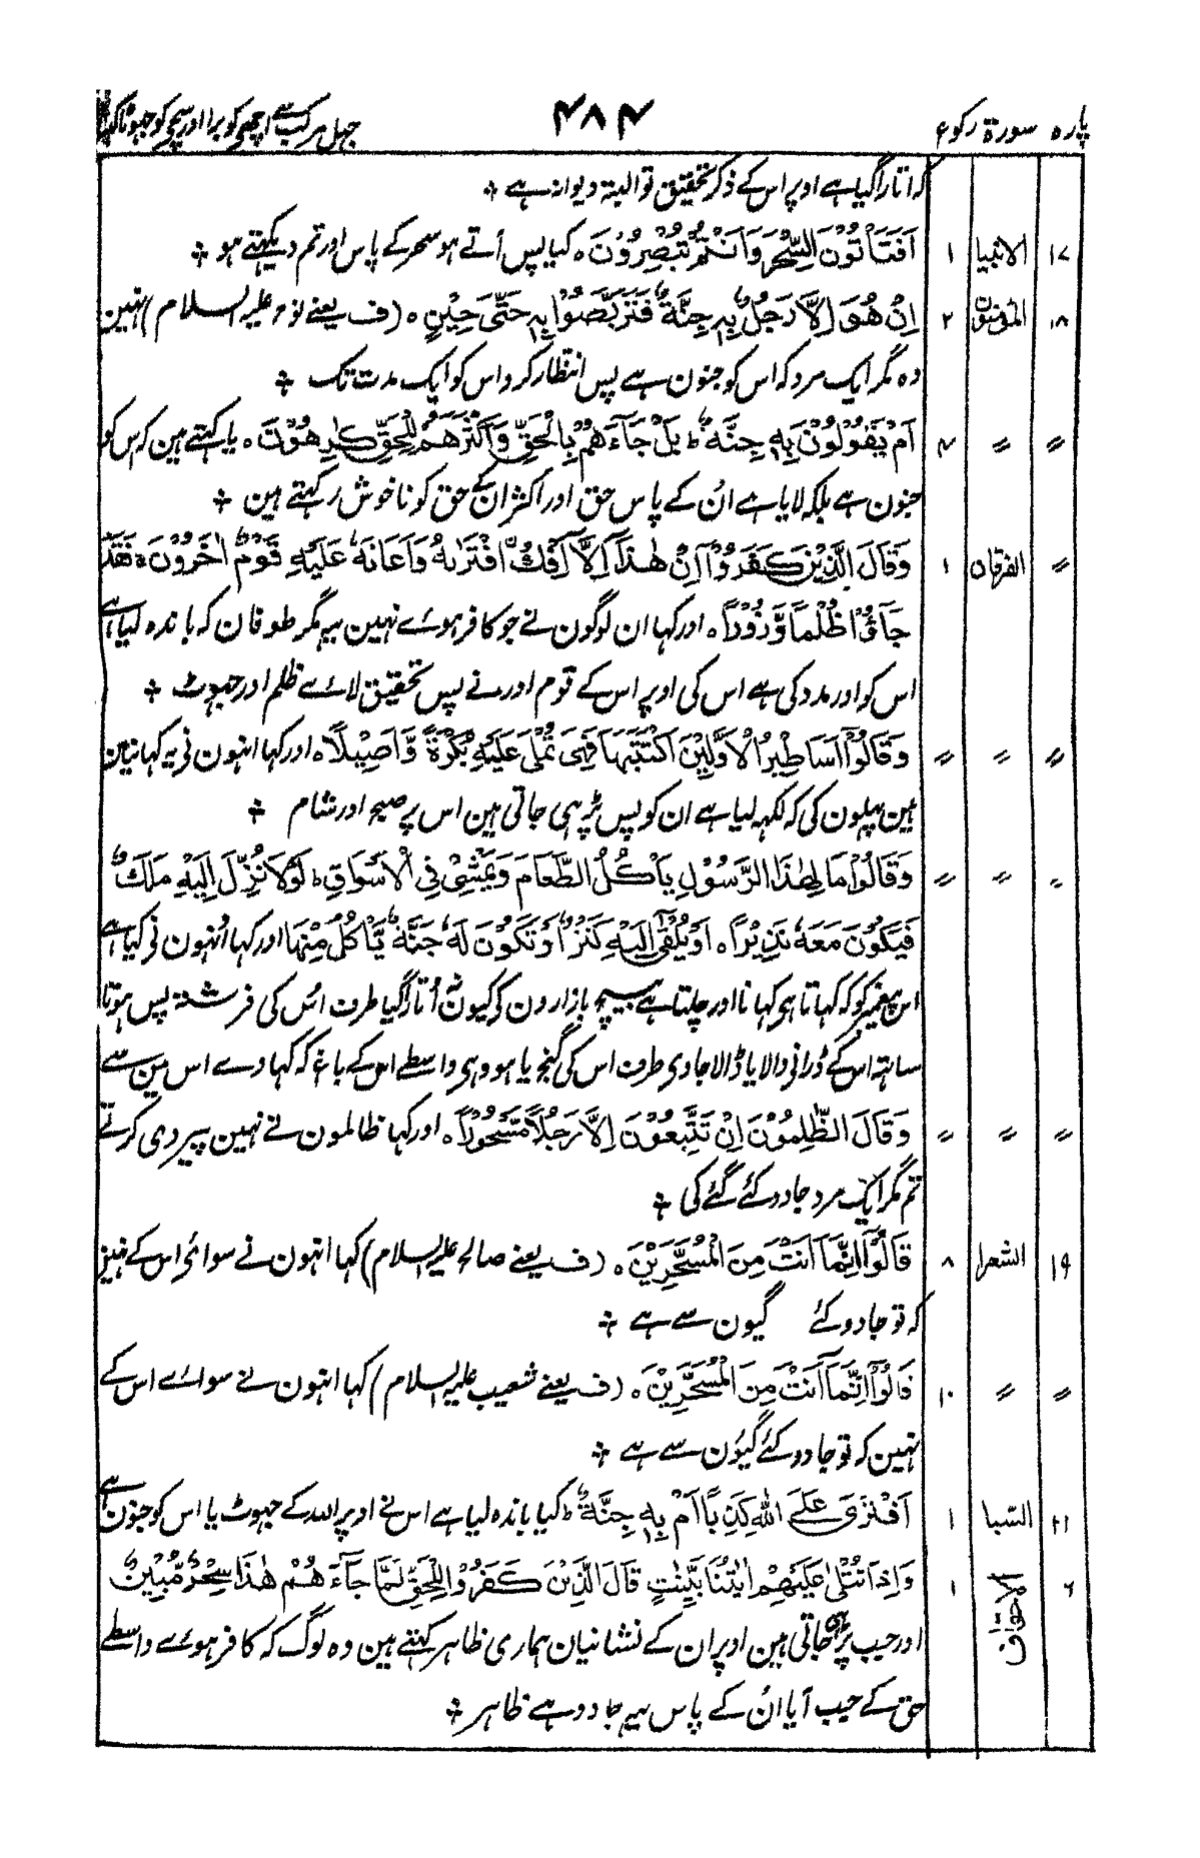 پارہ سورۃ رکوع ۴۸۴ جہل مرکب سے اچھی کو برا اور سچ کو جہوٹا کہنا
کہ اتارا گیا ہے اوپر اس کے ذکر تحقیق تو البتہ دیوانہ ہے ⁘
۱۷ الانبیا ۱ اَفَتَاْتُوْنَ السِّحْرَ وَاَنْتُمْ تُبْصِرُوْنَ ہ کیا پس آتے ہو سحر کے پاس اور تم دیکہتے ہو ⁘
۱۸ المؤمنون ۲ اِنْ هُوَ اِلَّا رَجُلٌۢ بِهٖ جِنَّةٌ فَتَرَبَّصُوْا بِهٖ حَتّٰى حِيْنٍ ہ (ف یعنے نوح علیہ السلام) نہین
وہ مگر ایک مرد کہ اس کو جنون ہے پس انتظار کرو اس کو ایک مدت تک ⁘
〃 〃 ۴ اَمْ يَقُوْلُوْنَ بِهٖ جِنَّةٌ ط بَلْ جَآءَهُمْ بِالْحَقِّ وَاَكْثَرُهُمْ لِلْحَقِّ كٰرِهُوْنَ ہ یا کہتے ہین کہ اس کو
جنون ہے بلکہ لایا ہے اُن کے پاس حق اور اکثر ان کے حق کو ناخوش رکہتے ہین ⁘
〃 الفرقان ۱ وَقَالَ الَّذِيْنَ كَفَرُوْٓا اِنْ هٰذَآ اِلَّآ اِفْكُ ِۨافْتَرٰىهُ وَاَعَانَهٗ عَلَيْهِ قَوْمٌ اٰخَرُوْنَ ہ فَقَدْ
جَآءُوْا ظُلْمًا وَّ زُوْرًا ہ اور کہا ان لوگون نے جو کافر ہوے نہین یہ مگر طوفان کہ باندہ لیا ہے
اس کو اور مدد کی ہے اس کی اوپر اس کے قوم اور نے پس تحقیق لائے ظلم اور جہوٹ ⁘
〃 〃 〃 وَقَالُوْٓا اَسَاطِيْرُ الْاَوَّلِيْنَ اكْتَتَبَهَا فَهِيَ تُمْلٰى عَلَيْهِ بُكْرَةً وَّاَصِيْلًا ہ اور کہا انہون نی یہ کہانیین
ہین پہلون کی کہ لکہہ لیا ہے ان کو پس پڑہی جاتی ہین اس پر صبح اور شام ⁘
〃 〃 〃 وَقَالُوْا مَالِ هٰذَا الرَّسُوْلِ يَاْكُلُ الطَّعَامَ وَيَمْشِيْ فِي الْاَسْوَاقِ ط لَوْلَآ نُزِّلَ اِلَيْهِ مَلَكٌ
فَيَكُوْنَ مَعَهٗ نَذِيْرًا ہ اَوْ يُلْقٰٓى اِلَيْهِ كَنْزٌ اَوْ تَكُوْنُ لَهٗ جَنَّةٌ يَّاْكُلُ مِنْهَا اور کہا اُنہون نی کیا ہے
اس پیغمبر کو کہ کہاتا ہی کہانا اور چلتا ہے بیچ بازارون کے کیون نہ اُتارا گیا طرف اُس کی فرشتہ پس ہوتا
ساتہہ اس کے ڈرانی والا یا ڈالا جاوی طرف اس کی گنج یا ہووی واسطے اس کے باغ کہ کہاوے اس مین سے
〃 〃 〃 وَقَالَ الظّٰلِمُوْنَ اِنْ تَتَّبِعُوْنَ اِلَّا رَجُلًا مَّسْحُوْرًا ہ اور کہا ظالمون نے نہین پیروی کرتے
تم مگر ایک مرد جادو کئے گئے کی ⁘
۱۹ الشعرا ۸ قَالُوْٓا اِنَّمَآ اَنْتَ مِنَ الْمُسَحَّرِيْنَ ہ (ف یعنے صالح علیہ السلام) کہا انہون نے سوائے اس کے نہین
کہ تو جادو کئے گیون سے ہے ⁘
〃 〃 ۱۰ قَالُوْٓا اِنَّمَآ اَنْتَ مِنَ الْمُسَحَّرِيْنَ ہ (ف یعنے شعیب علیہ السلام) کہا انہون نے سوائے اس کے
نہین کہ تو جادو کئے گیون سے ہے ⁘
۲۱ السبا ۱ اَفْتَرٰى عَلَى اللّٰهِ كَذِبًا اَمْ بِهٖ جِنَّةٌ ط کیا باندہ لیا ہے اس نے اوپر اللہ کے جہوٹ یا اس کو جنون ہے
۶ الاحقاف ۱ وَاِذَا تُتْلٰى عَلَيْهِمْ اٰيٰتُنَا بَيِّنٰتٍ قَالَ الَّذِيْنَ كَفَرُوْا لِلْحَقِّ لَمَّا جَآءَهُمْ هٰذَا سِحْرٌ مُّبِيْنٌ
اور جب پڑہی جاتی ہین اوپر ان کے نشانیان ہماری ظاہر کہتے ہین وہ لوگ کہ کافر ہوے واسطے
حق کے جب آیا اُن کے پاس یہ جادو ہے ظاہر ⁘